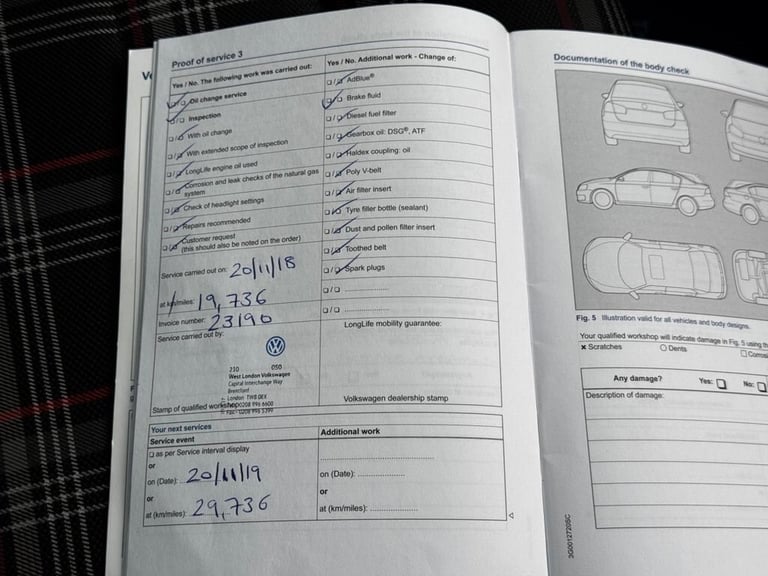 Proof of service 3
Yes / No. The following work was carried out:
Oil change service
Inspection
With oil change
With extended scope of inspection
LongLife engine oil used
Corrosion and leak checks of the natural gas
system
Check of headlight settings
Repairs recommended
Customer request
(this should also be noted on the order)
Service carried out on: 20/11/18
at km/miles: 19,736
Invoice number: 23190
Service carried out by:
210 050
West London Volkswagen
Capital Interchange Way
Brentford
London TW8 0EX
Stamp of qualified workshop 0208 996 6600
Yes / No. Additional work - Change of:
AdBlue®
Brake fluid
Diesel fuel filter
Gearbox oil: DSG®, ATF
Haldex coupling: oil
Poly V-belt
Air filter insert
Tyre filler bottle (sealant)
Dust and pollen filter insert
Toothed belt
Spark plugs
LongLife mobility guarantee:
Volkswagen dealership stamp
Your next services
Service event
as per Service interval display
or
on (Date): 20/11/19
or
at (km/miles): 29,736
Additional work
on (Date):
or
at (km/miles):
Documentation of the body check
Fig. 5 Illustration valid for all vehicles and body designs.
Your qualified workshop will indicate damage in Fig. 5 using th
× Scratches O Dents
Any damage? Yes: No:
Description of damage:
3G0012720SC